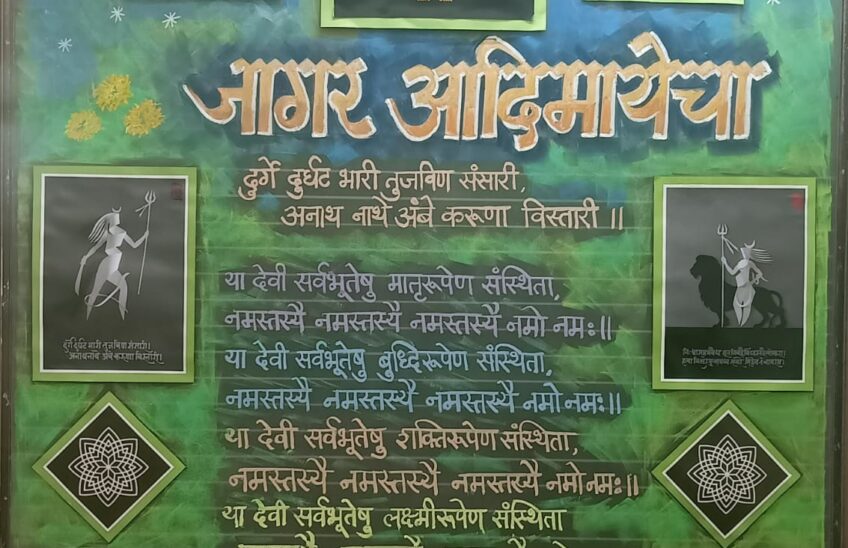 जागर आदिमायेचा
दुर्गे दुर्घट भारी तुजविण संसारी,
अनाथ नाथे अंबे करूणा विस्तारी ॥
या देवी सर्वभूतेषु मातृरूपेण संस्थिता,
नमस्तस्यै नमस्तस्यै नमस्तस्यै नमो नमः॥
या देवी सर्वभूतेषु बुध्दिरूपेण संस्थिता,
नमस्तस्यै नमस्तस्यै नमस्तस्यै नमो नमः॥
या देवी सर्वभूतेषु शक्तिरूपेण संस्थिता,
नमस्तस्यै नमस्तस्यै नमस्तस्यै नमो नमः॥
या देवी सर्वभूतेषु लक्ष्मीरूपेण संस्थिता
दुर्गे दुर्घट भारी तुजविण संसारी।
अनाथनाथे अंबे करुणा विस्तारी।